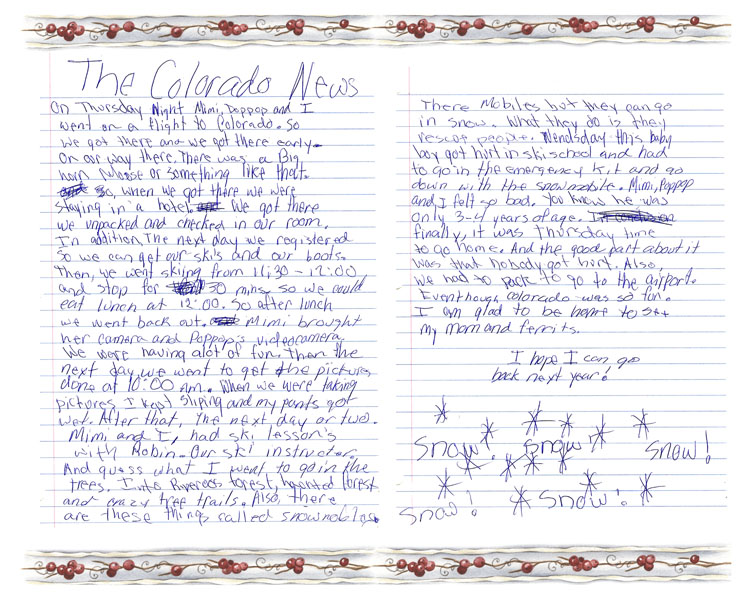 The Colorado News
On Thursday Night Mimi, Poppop and I
went on a flight to Colorado. So
we got there and we got there early.
On our way there. There was a Big
horn
or something like that.
So, when we got there we were
staying in a hotel. We got there
we unpacked and checked in our room.
In addition, The next day we registered
so we can get our skis and our boots.
Then, we went skiing from 11:30 - 12:00
and stop for 30 mins. so we could
eat lunch at 12:00. So after lunch
we went back out. Mimi brought
her camera and Poppop's videocamera.
We were having alot of fun. Then the
next day we went to get the pictures
done at 10:00 Am. When we were taking
pictures I kept sliping and my pants got
wet. After that, the next day or two.
Mimi and I, had ski lesson's
with Robin. Our ski instructor.
And guess what I went to go in the
trees. Into
forest, haunted forest
and crazy tree trails. Also, there
are these things called snowmobiles.
There Mobiles but they can go
in snow. What they do is they
rescue people. Wendsday this baby
boy got hurt in ski school and had
to go in the emergency kit and go
down with the snowmobile. Mimi, Poppop
and I felt so bad. You know he was
only 3-4 years of age.
finally, it was Thursday time
to go home. And the good part about it
was that nobody got hurt. Also,
we had to pack to go to the airport.
Eventhough colorado was so fun.
I am glad to be home to see
my mom and ferrits.
I hope I can go
back next year!
Snow! Snow! Snow!
Snow! Snow!